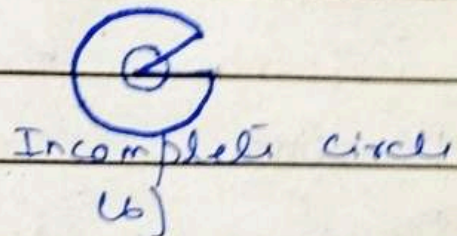 Incomplete circle
(b)